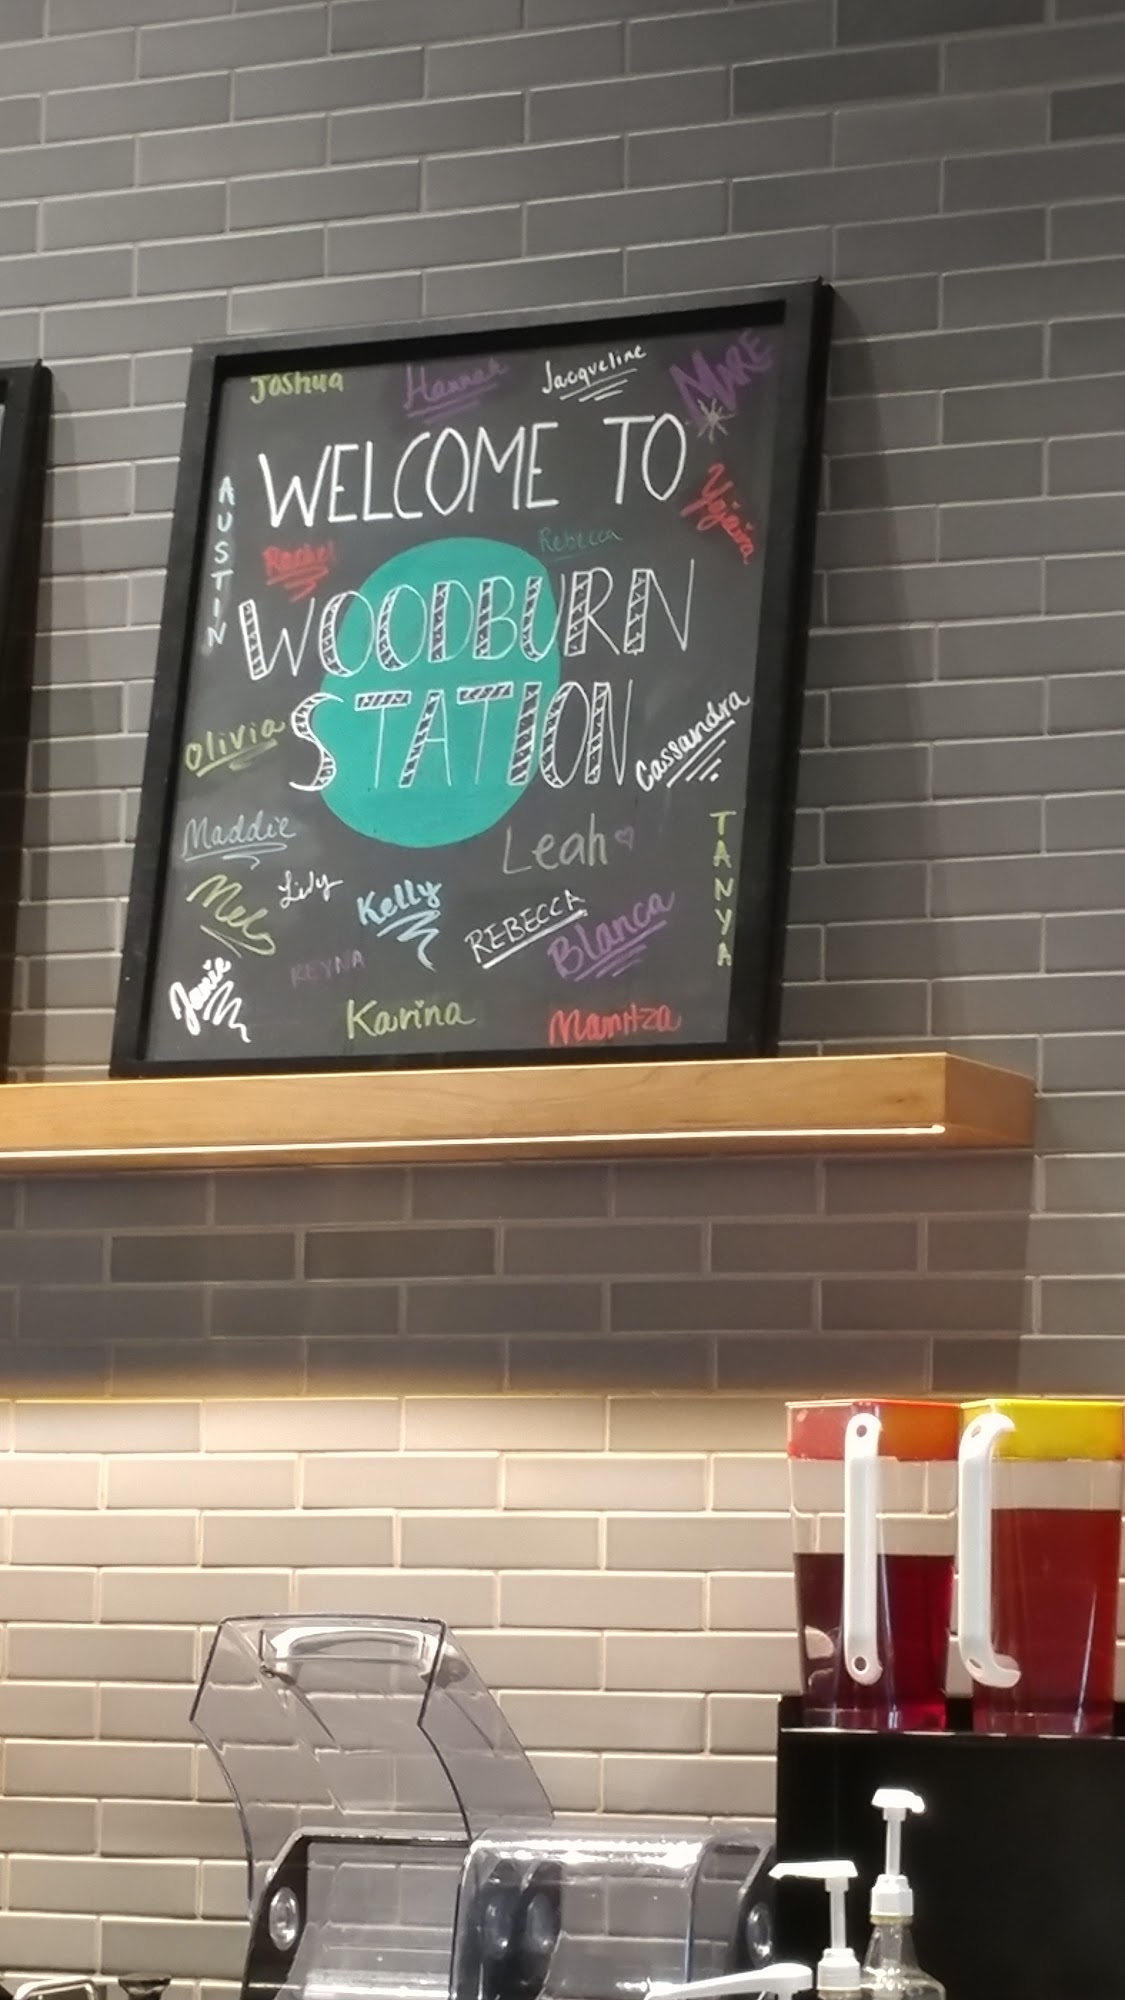 Joshua
Hannah
Jacqueline
MARE
WELCOME TO
AUSTIN
Rachel
Rebecca
Yojaira
WOODBURN
STATION
Olivia
Cassandra
Maddie
Leah
TANYA
Mel
Lily
Kelly
REBECCA
Blanca
REYNA
Janie
Karina
Maritza